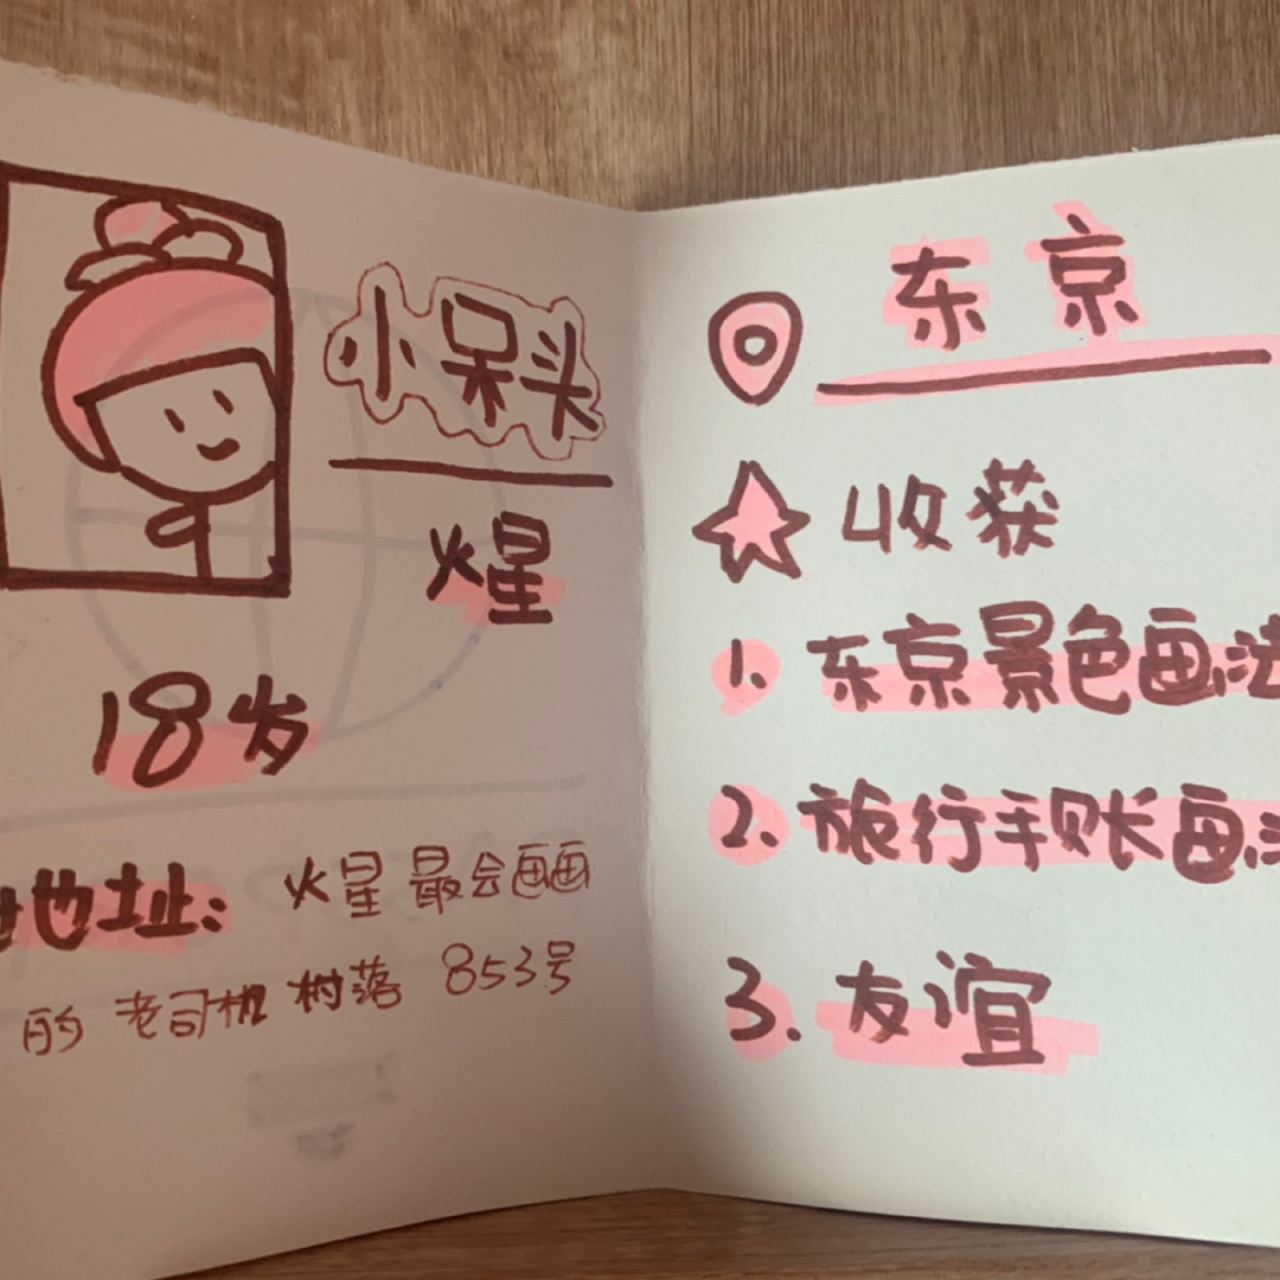 小呆头
火星
18岁
地址：火星最会画画
的老司机村落 853号
东京
收获
1. 东京景色画法
2. 旅行手账画法
3. 友谊